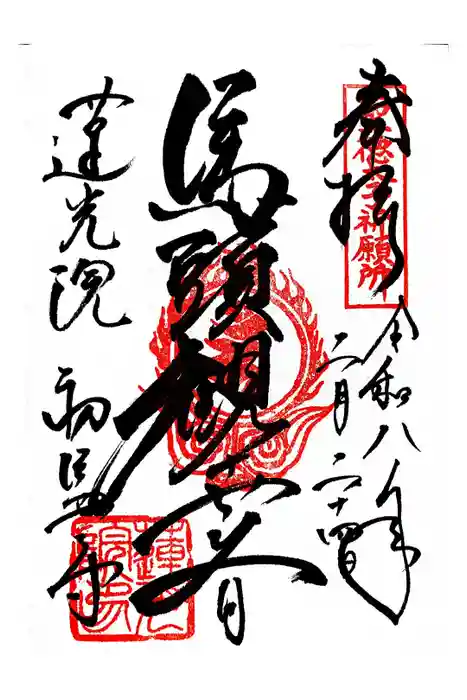 奉拝
聖徳太子祈願所
令和八年
二月二十四日
馬頭観音
蓮光院 初馬寺